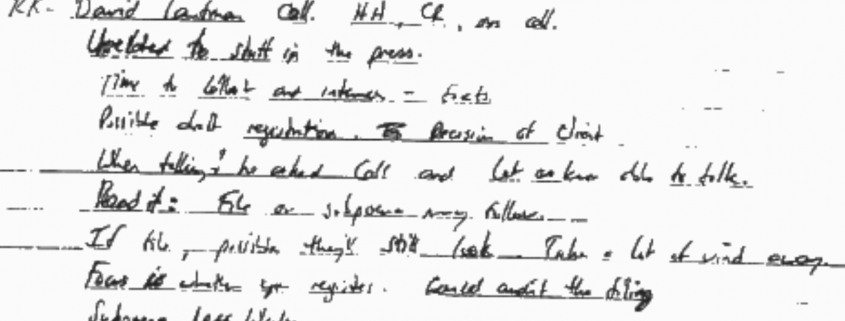 KK- David Laufman Call. HH, CR, on call.
Unrelated to stuff in the press.
Time to collect our - Facts
Possible draft registration. Decision of Client
When talking, he asked Call and let us know able to talk.
File or subpoena may follow.
If file, possible they'll still look Takes a lot of wind away
Focus is whether you register. Could audit the filing
Subpoena less likely